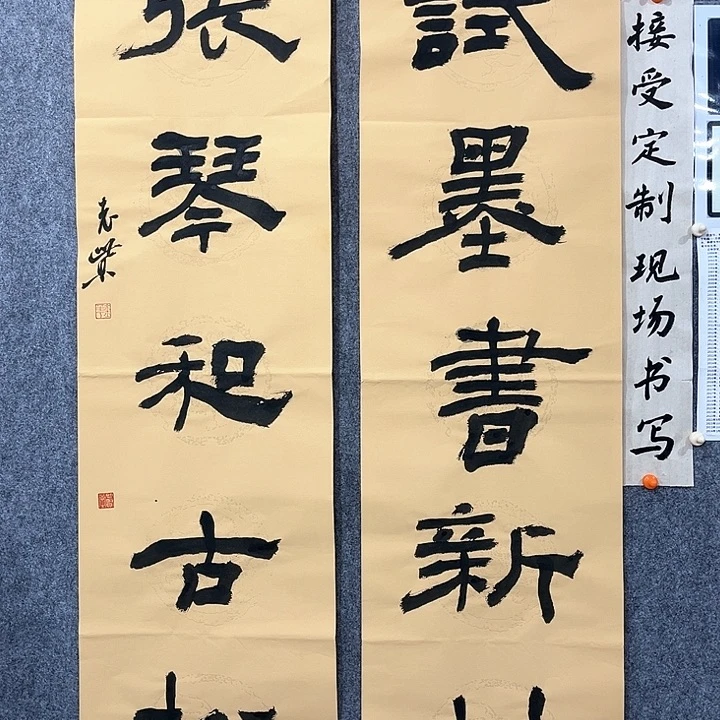 接受定制现场书写
試墨書新
張琴和古